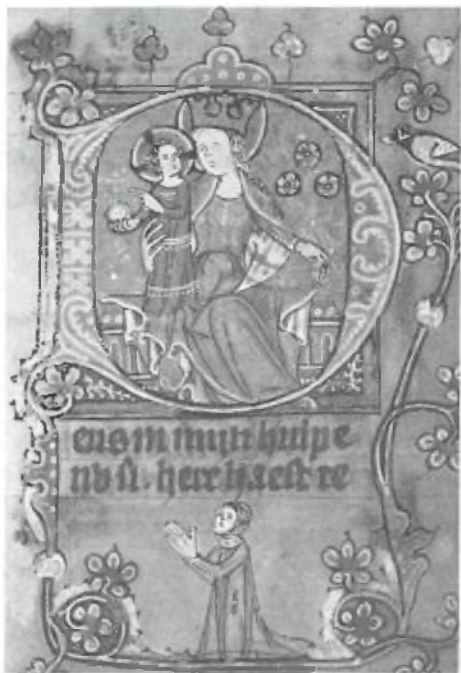 Deus in mijn hulpe
nv si. here haest te